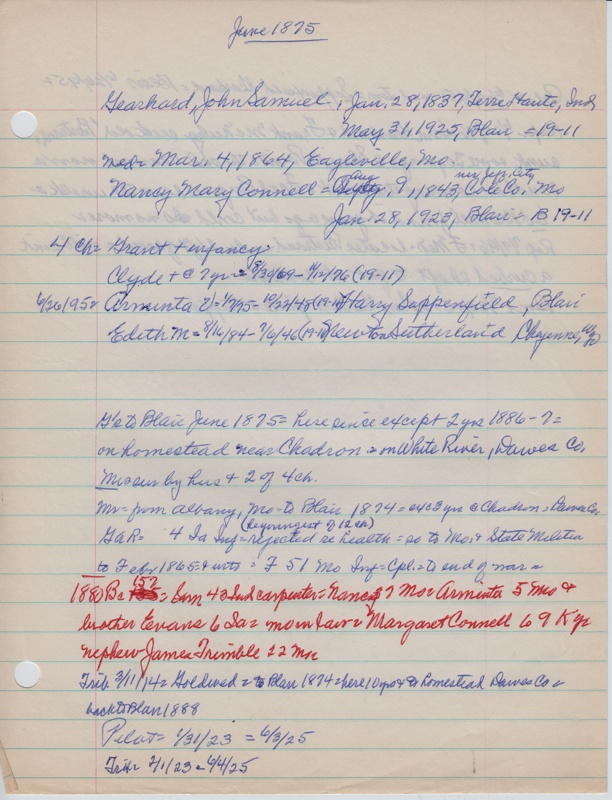 June 1875
Gearhard, John Samuel, Jan. 28, 1837, Terre Haute, Ind
May 31, 1925, Blair = 19-11
med = Mar. 4, 1864, Eagleville, Mo.
Nancy Mary Connell = Aug 9, 1843, nr Jeff. City Cole Co. Mo
Jan. 28, 1923, Blair = B 19-11
4 ch = Grant + infancy
Clyde + @ 7 yrs = 8/30/69 - 4/12/76 (19-11)
6/26/1952 Arminta V = 1/7/75 = 10/22/48 (19-11) Harry Sappenfield, Blair
Edith M = 8/16/84 - 7/6/46 (19-11) Newton Sutherland, Cheyenne, Wyo
G's to Blair June 1875 = here since except 2 yrs 1886-7 =
on homestead near Chadron = on White River, Dawes Co.
Mrs sur by hus + 2 of 4 ch.
Mr = from Albany, Mo = to Blair 1874 = exc 3 yrs @ Chadron = Dawes Co.
(be youngest of 12 ch)
GAR = 4 Ia Inf = rejected re health = so to Mo. State Militia
to Febr 1865 = F 51 Mo Inf = Cpl. = to end of war =
1880 Bc 157 = Sam 43 Ind carpenter = Nancy 37 Mo = Arminta 5 Mo +
brother Evans 6 Ia = mo in law = Margaret Connell 69 Ky
nephew James Trimble 22 Mo
Trib 3/11/14 = Gold wed = to Blair 1874 = here 10 yrs + to homestead Dawes Co =
back to Blair 1888
Pilot = 1/31/23 = 6/3/25
Trib = 2/1/23 = 6/4/25